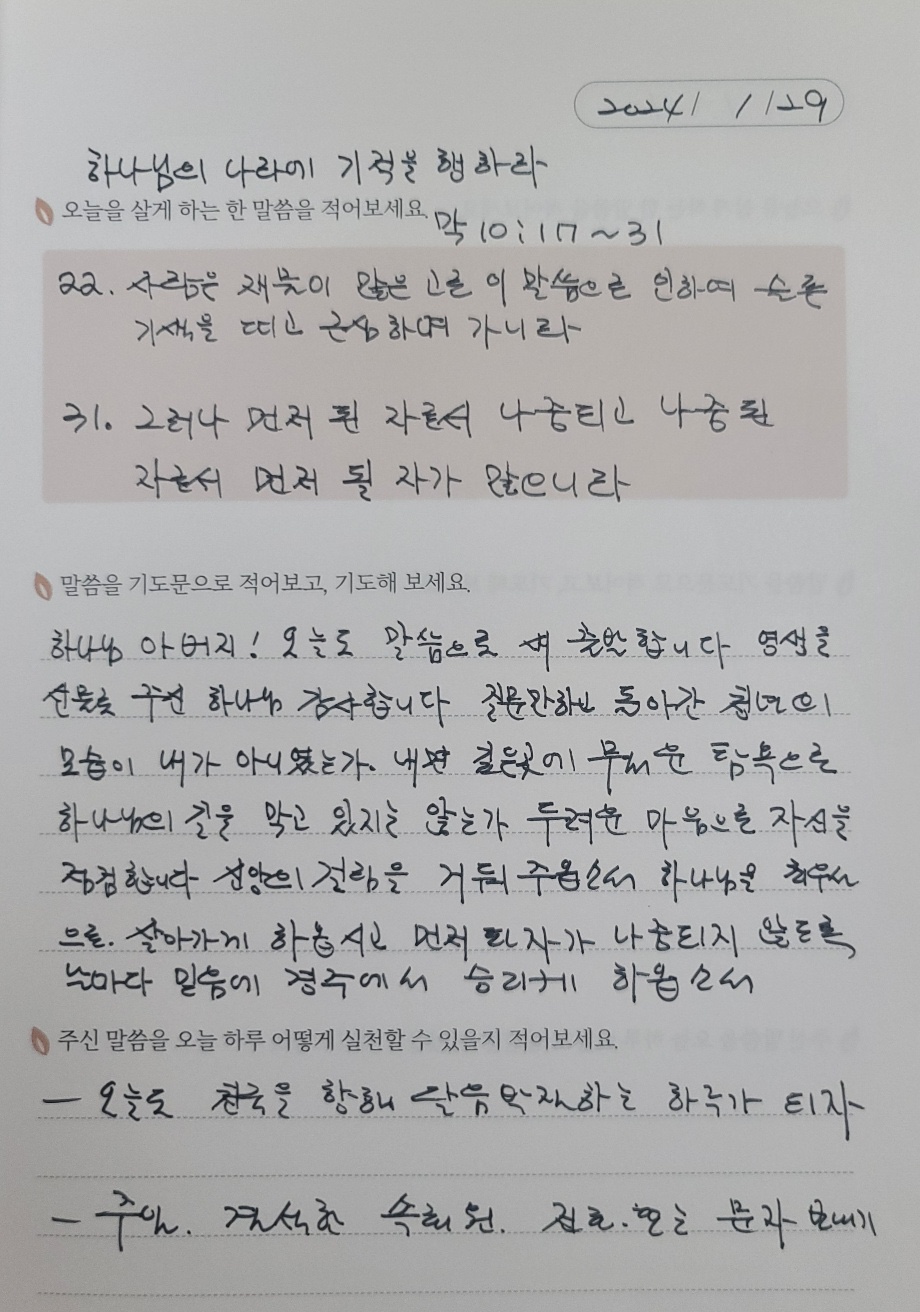 2024/ 1/29
하나님의 나라에 기적을 행하라
오늘을 살게 하는 한 말씀을 적어보세요.
막 10:17~31
22. 사람은 재물이 많은 고로 이 말씀으로 인하여 슬픈
기색을 띠고 근심하며 가니라
31. 그러나 먼저 된 자로서 나중되고 나중된
자로서 먼저 될 자가 많으니라
말씀을 기도문으로 적어보고, 기도해 보세요.
하나님 아버지! 오늘도 말씀으로 새 출발합니다 영생을
선물로 주신 하나님 감사합니다 질문만하고 돌아간 청년의
모습이 내가 아니였는가. 내면 깊은곳에 무거운 탐욕으로
하나님의 길을 막고 있지는 않는가 두려운 마음으로 자신을
점검합니다 신앙의 걸림을 거둬 주옵소서 하나님을 최우선
으로. 살아가게 하옵시고 먼저 된자가 나중되지 않도록
날마다 믿음에 경주에서 승리케 하옵소서
주신 말씀을 오늘 하루 어떻게 실천할 수 있을지 적어보세요.
- 오늘도 천국을 향해 달음박질하는 하루가 되자
- 주일. 결석한 속회원. 전화. 또는 문자 보내기